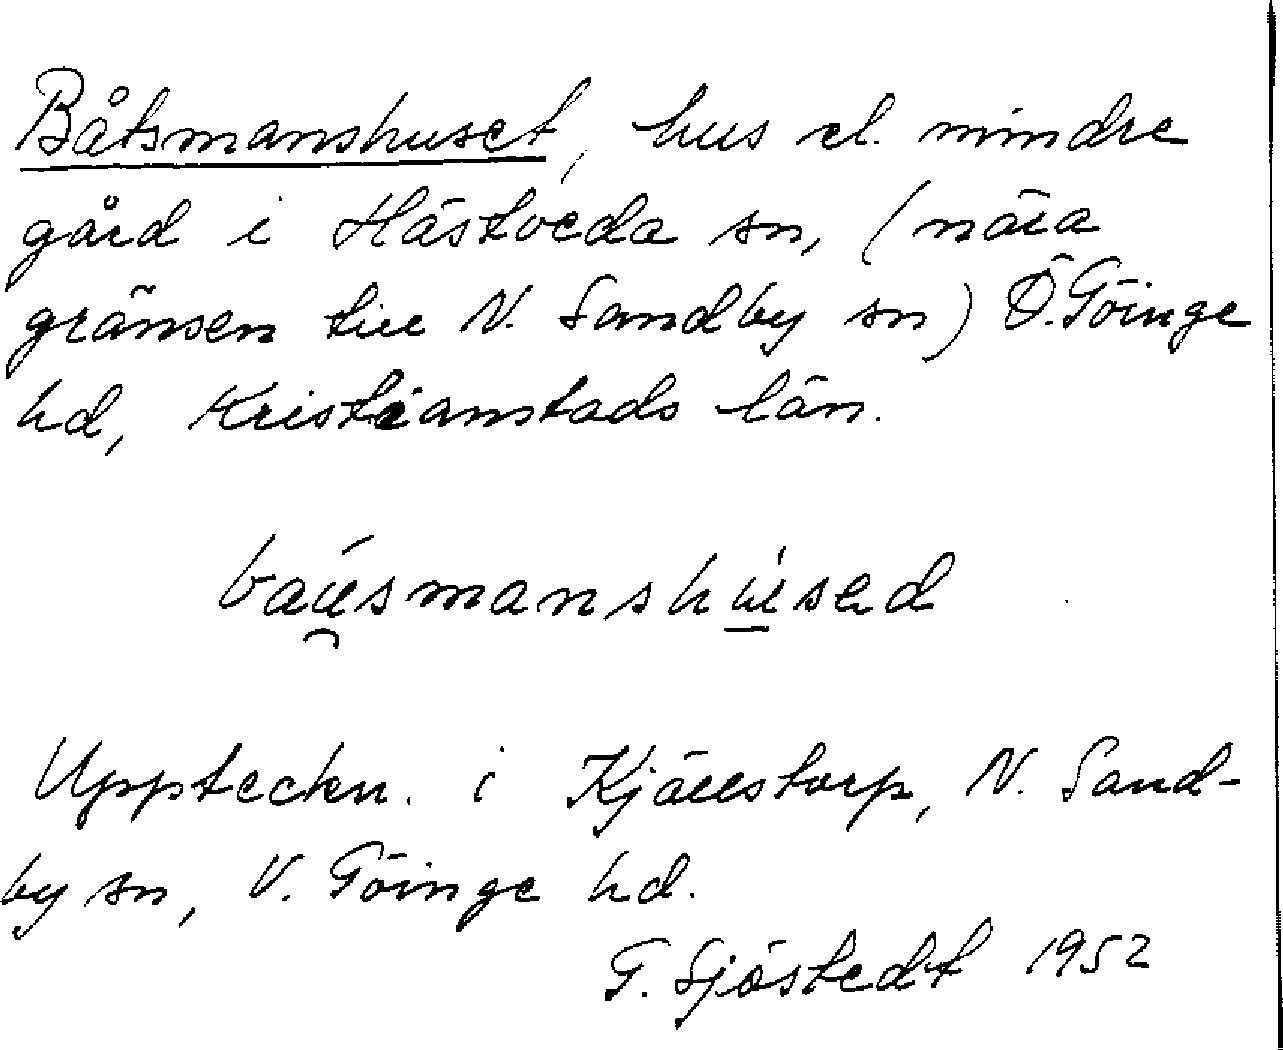 Båtsmanshuset, hus el. mindre
gård i Hästveda sn, (nära
gränsen till N. Sandby sn) Ö. Göinge
hd, Kristianstads län.
Uppteckn. i Kjällstorp, N. Sand-
by sn, V. Göinge hd.
G. Sjöstedt 1952